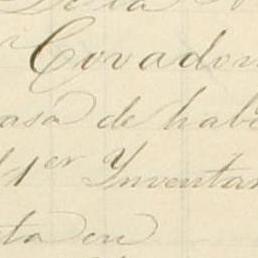 de la
Covadon
casa de hab
1er Inventar
ta en